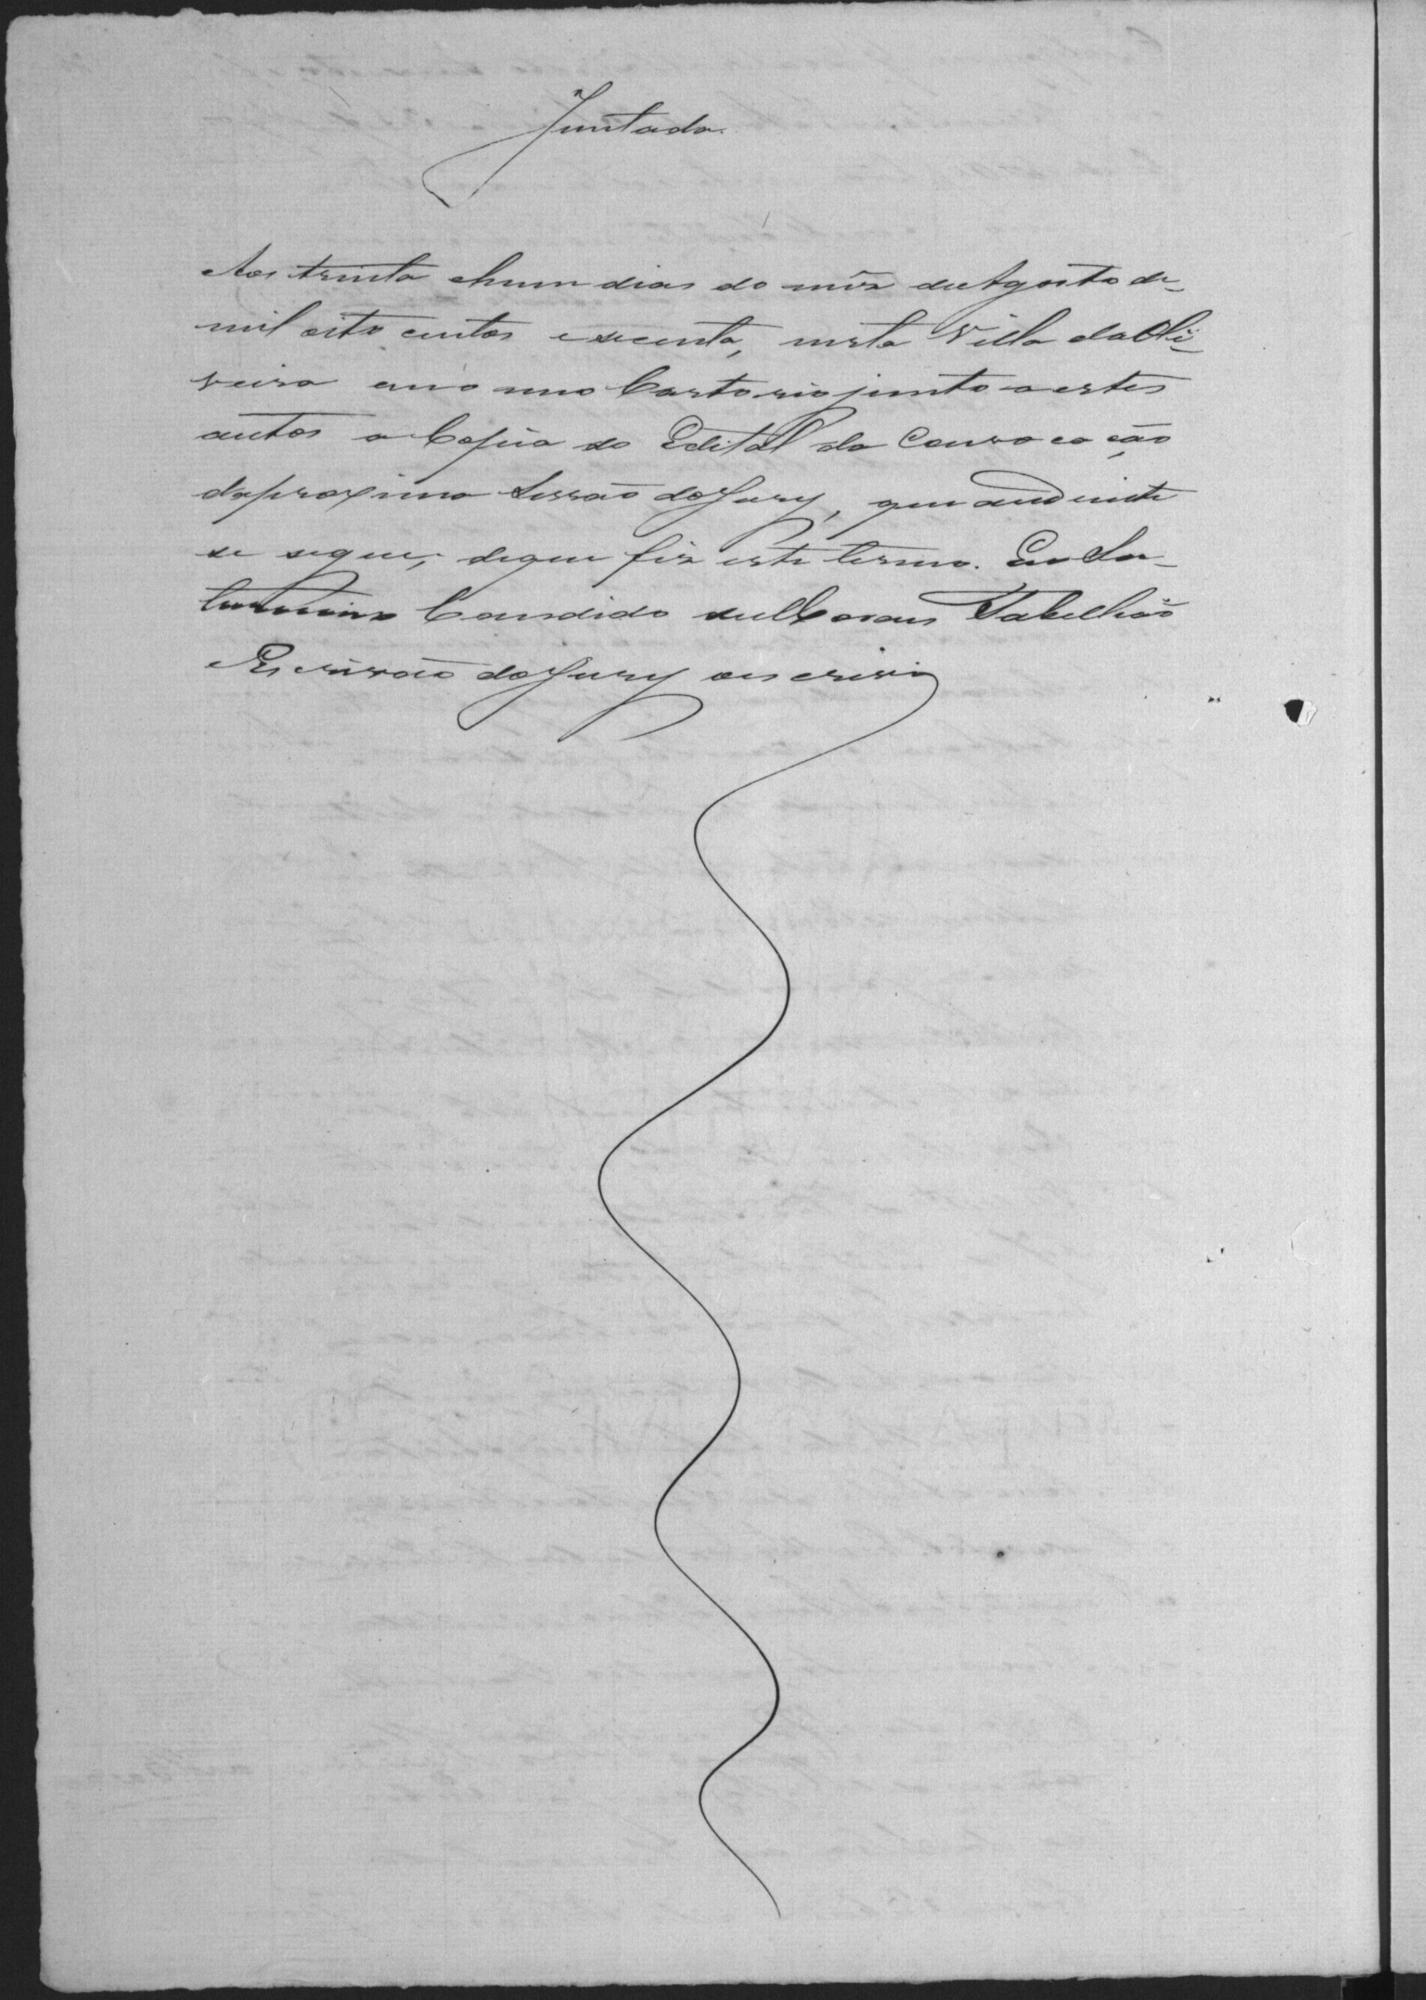 Juntada
Aos trinta e hum dias do mêz de Agosto de
mil oito centos e secenta, nesta Villa da Oli-
veira em o meo Cartorio junto a estes
autos a Copia do Edital da Convocação
da proxima Sessão do Jury, que ao diante
se segue, de que fiz este termo. Eu Sa-
turnino Candido de Moraes Tabelhão
Escrivão do Jury o escrivi